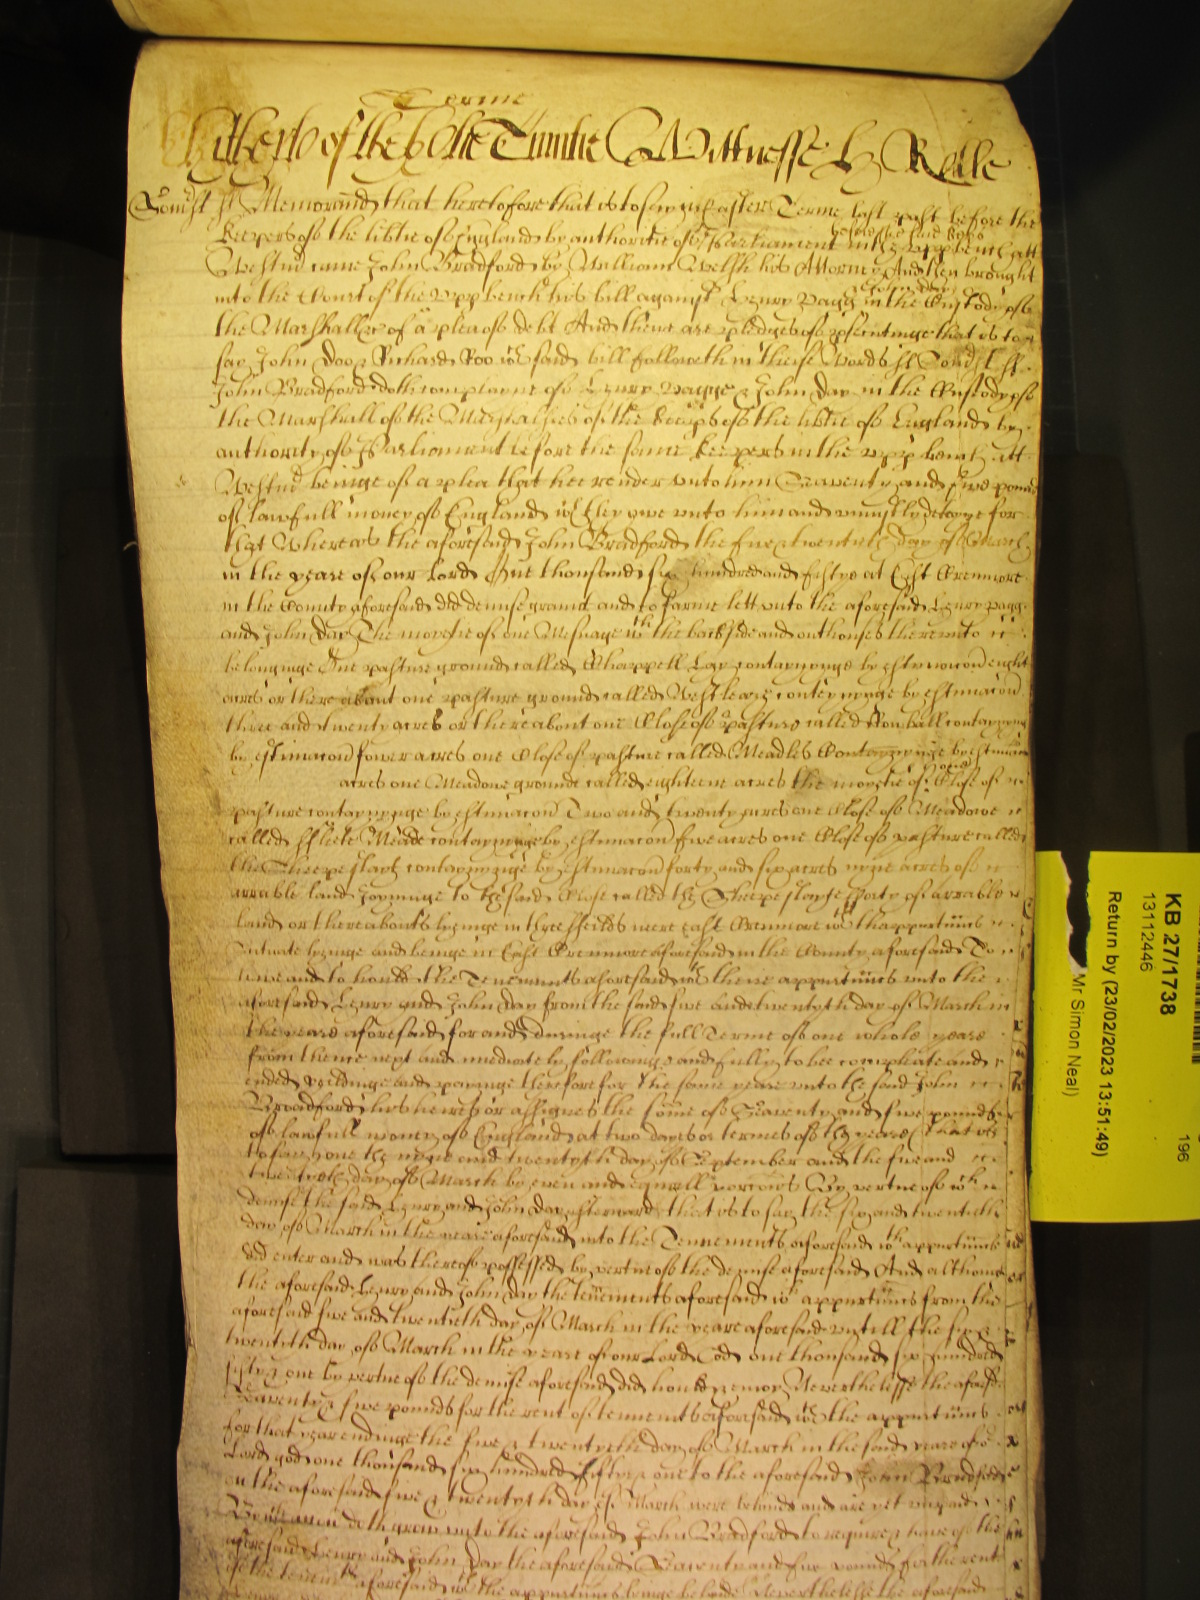 Terme
of the holie Trinitie Wittnesse H Rolle
Somst ss Memorand that heretofore that is to say in Easter Terme last past before the
Keepers of the libtie of England by authoritie of Parliament in the upp bench att
Westm came John Bradford by William Welsh his Attorney And then brought
into the Court of the upp bench his bill against Henry Pagge & John Day in the Custody of
the Marshall &c of a plea of debt And there are pledges of psecutinge that is to
say John Doo & Richard Roo wch said bill followeth in these words ss Somst ss
John Bradford doth complayne of Henry Pagge & John Day in the Custody of
the Marshall of the Marshalsies of the Keeps of the libtie of England by
authority of Parliament before the same Keepers in the upp bench att
Westm beinge of a plea that hee render unto him Seaventy and five pounds
of lawfull money of England wch they owe unto him and uniustly deteyne for
that Whereas the aforesaid John Bradford the five & twentieth day of March
in the yeare of our Lord One thousand six hundred and fiftye at East Crenmore
in the County aforesaid did demise graunt and to farme lett unto the aforesaid Henry Pagge
and John Day The moyetie of one Mesuage wth the backside and outhouses thereunto
belonginge One pasture ground called Chappell Lay contayninge by estimacon eight
acres or there about one pasture ground called Westleaze conteyninge by estimacon
three and twenty acres or thereabout one Close of pasture called contayninge
by estimacon fower acres one Close of pasture called Meadles Contayninge by estimacon
acres one Meadow ground called eighteene acres the moyetie of one Close of
pasture contayninge by estimacon Two and twenty acres one Close of Meadowe
called Meade contayninge by estimacon five acres one Close of pasture called
the contayninge by estimacon forty and six acres nyne acres of
arrable land Joyninge to the said Close called the forty of arrable
land or thereabouts lyinge in three feilds neere East Crenmore wth thappurtnncs
Scituate lyinge and beinge in East Crenmore aforesaid in the County aforesaid To
have and to hould the Tenements aforesaid wth there appurtnncs unto the
aforesaid Henry and John Day from the said five and twentyth day of March in
the yeare aforesaid for and duringe the full Terme of one whole yeare
from thence next and imediately followinge and fully to bee compleate and
ended yeildinge and payinge therefore for the same yeare unto the said John
Bradford his heires or assignes the some of Seaventy and five pounds
of lawfull money of England at two dayes or termes of the yeare that is
to say one the nyne and twentyth day of September and the five and
twentyth day of March by even and equall porcions By vertue of wch
demise the said Henry and John Day afterward that is to say the six and twentieth
day of March in the yeare aforesaid into the Tennements aforesaid wth appurtnncs
did enter and was thereof possessed by vertue of the demise aforesaid And althoug
the aforesaid Henry and John Day the tenements aforesaid wth appurtnncs from the
aforesaid five and twentieth day of March in the yeare aforesaid untill the six &
twentyth day of March in the yeare of our Lord God one thousand six hundred
fifty & one by vertue of the demise aforesaid did hould & enioy Neverthelesse the aforesd
Seaventy & five pounds for the rent of tenements aforesaid wth the appurtnncs
for that yeare endinge the five & twentyth day of March in the said yeare of
Lord god one thousand six hundred fiftye & one to the aforesaid John Bradford
on the aforesaid five & twentyth day of March were behind and are yet unpaid
doth grow unto the aforesaid John Bradford to require & have of the
aforesaid Henry and John Day the aforesaid Seaventy and five pounds for the rent
of the tenemts aforesaid wth the appurtnncs beinge behinde Neverthelesse the aforesaid
KB 27/1738
13112446
196
Return by (23/02/2023 13:51:49)
Mr Simon Neal)